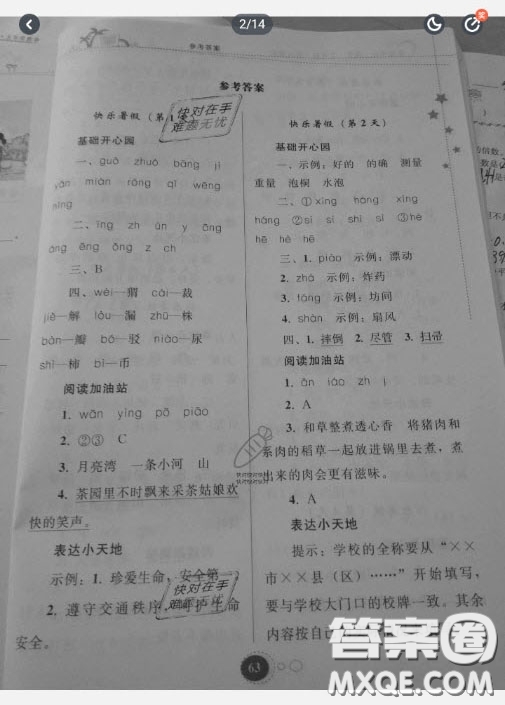 2/14
参考答案
参考答案
快乐暑假（第1天）
基础开心园
一、guō zhuō bāng jǐ
yán mián róng qǐ wēng
níng
二、īng zh ún y āng
áng ēng ǒng z ch
三、B
四、wèi—猬 cái—裁
jiě—解 lòu—漏 zhū—株
bàn—瓣 bó—驳 niào—尿
shì—柿 bì—币
阅读加油站
1. wān yíng pō piāo
2. ②③ C
3. 月亮湾 一条小河 山
4. 茶园里不时飘来采茶姑娘欢
快的笑声。
表达小天地
示例：1. 珍爱生命，安全第一
2. 遵守交通秩序，维护生命
安全。
快对在手
难题无忧
快对在手
快乐暑假（第2天）
基础开心园
一、示例：好的 的确 测量
重量 泡桐 水泡
二、①xíng háng xíng
háng ②sì sì shì sì ③hé
hē hé hē
三、1. piāo 示例：漂动
2. zhà 示例：炸药
3. fāng 示例：坊间
4. shàn 示例：扇风
四、1. 摔倒 2. 尽管 3. 扫帚
阅读加油站
1. ān iáo zh j
2. A
3. 和草整煮透心香 将猪肉和
系肉的稻草一起放进锅里去煮，煮
出来的肉会更有滋味。
4. A
表达小天地
提示：学校的全称要从“××
市××县（区）……”开始填写，
要与学校大门口的校牌一致。其余
内容按自己
63
答案圈
MXQE.COM